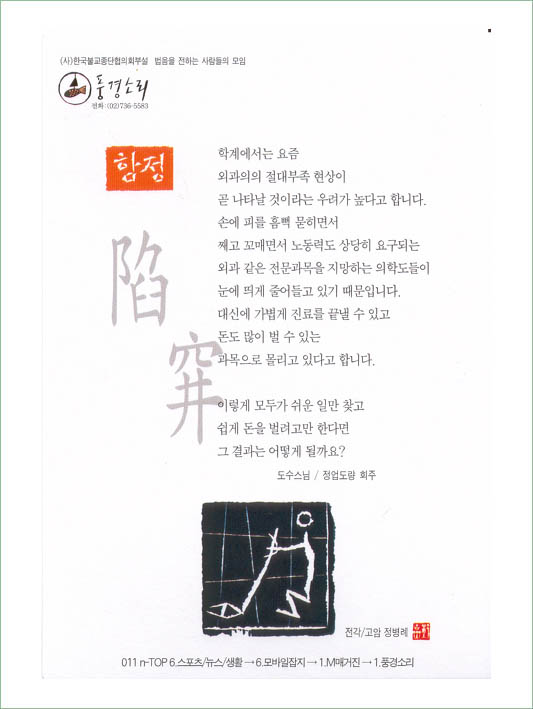 (사)한국불교종단협의회부설 법음을 전하는 사람들의 모임
풍경소리
전화:(02)736-5583
함정
陷穽
학계에서는 요즘
외과의의 절대부족 현상이
곧 나타날 것이라는 우려가 높다고 합니다.
손에 피를 흠뻑 묻히면서
째고 꼬매면서 노동력도 상당히 요구되는
외과 같은 전문과목을 지망하는 의학도들이
눈에 띄게 줄어들고 있기 때문입니다.
대신에 가볍게 진료를 끝낼 수 있고
돈도 많이 벌 수 있는
과목으로 몰리고 있다고 합니다.
이렇게 모두가 쉬운 일만 찾고
쉽게 돈을 벌려고만 한다면
그 결과는 어떻게 될까요?
도수스님 / 정업도량 회주
전각/고암 정병례
011 n-TOP 6.스포츠/뉴스/생활 → 6.모바일잡지 → 1.M매거진 → 1.풍경소리